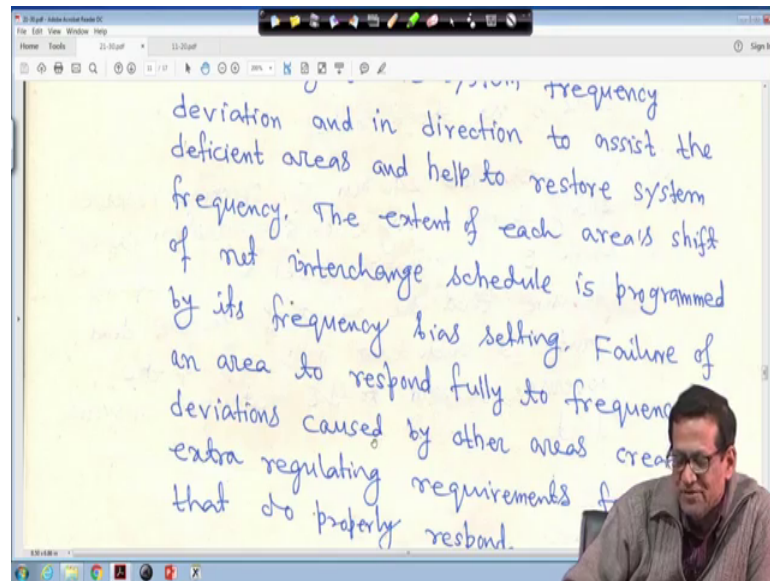 21-30.pdf - Adobe Acrobat Reader DC
File Edit View Window Help
Home Tools 21-30.pdf × 11-20.pdf Sign In
11 / 17 200%
system frequency
deviation and in direction to assist the
deficient areas and help to restore system
frequency. The extent of each area's shift
of net interchange schedule is programmed
by its frequency bias setting. Failure of
an area to respond fully to frequenc
deviations caused by other areas crea
extra regulating requirements f
that do properly respond.
8.50 x 8.68 in